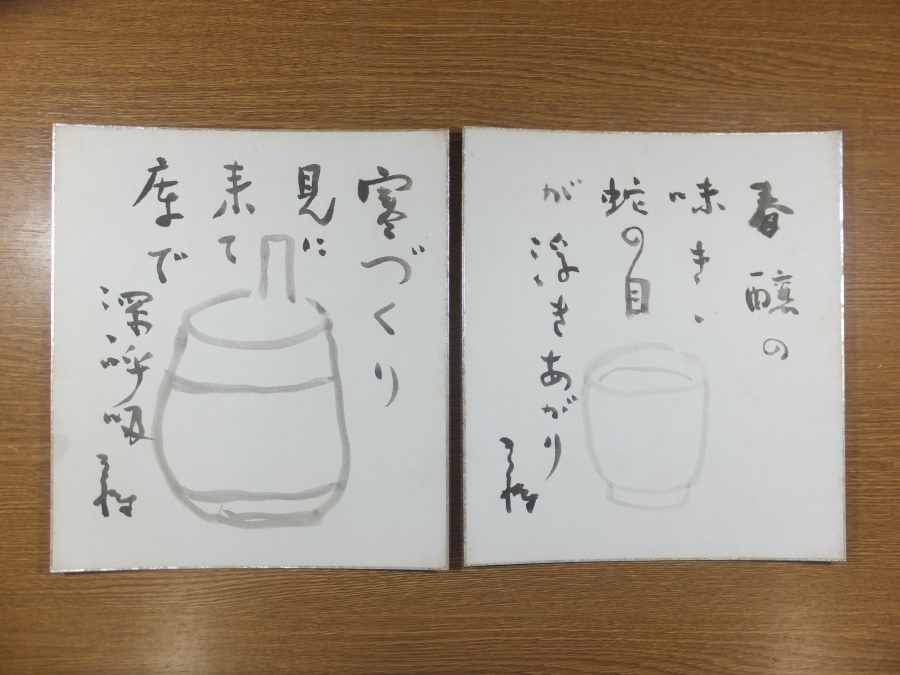 春醸の
味きゝ
蛇の目
が浮きあがり
寒づくり
見に
来て
庫で深呼吸